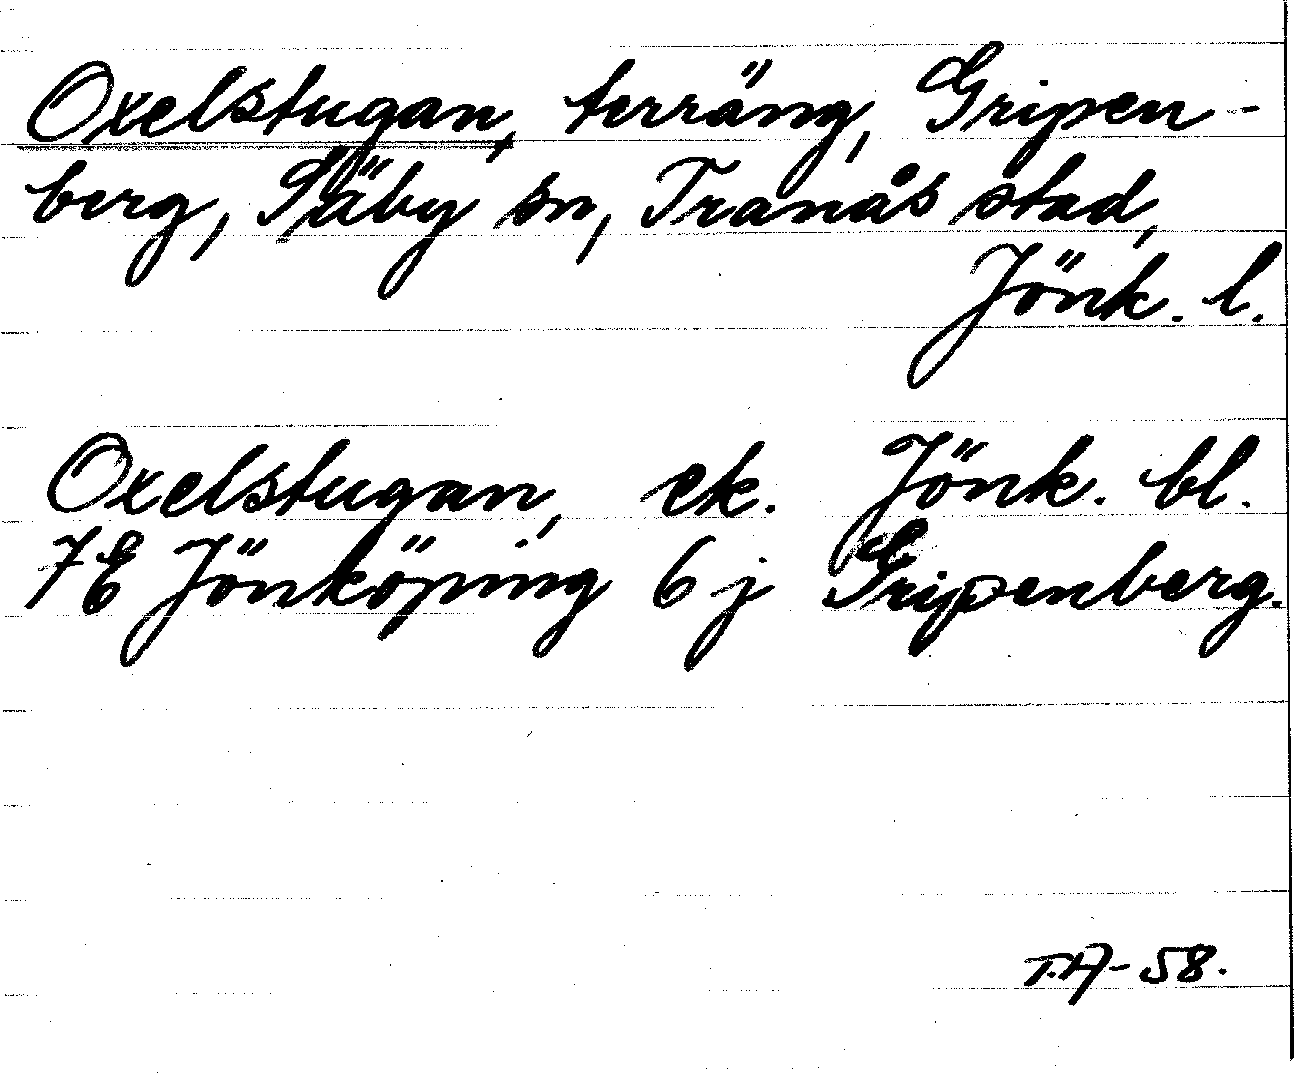 Oxelstugan, terräng, Gripen-
berg, Säby sn, Tranås stad,
Jönk. l.
Oxelstugan, ek. Jönk. bl.
7E Jönköping 6 j Gripenberg.
T.A-58.